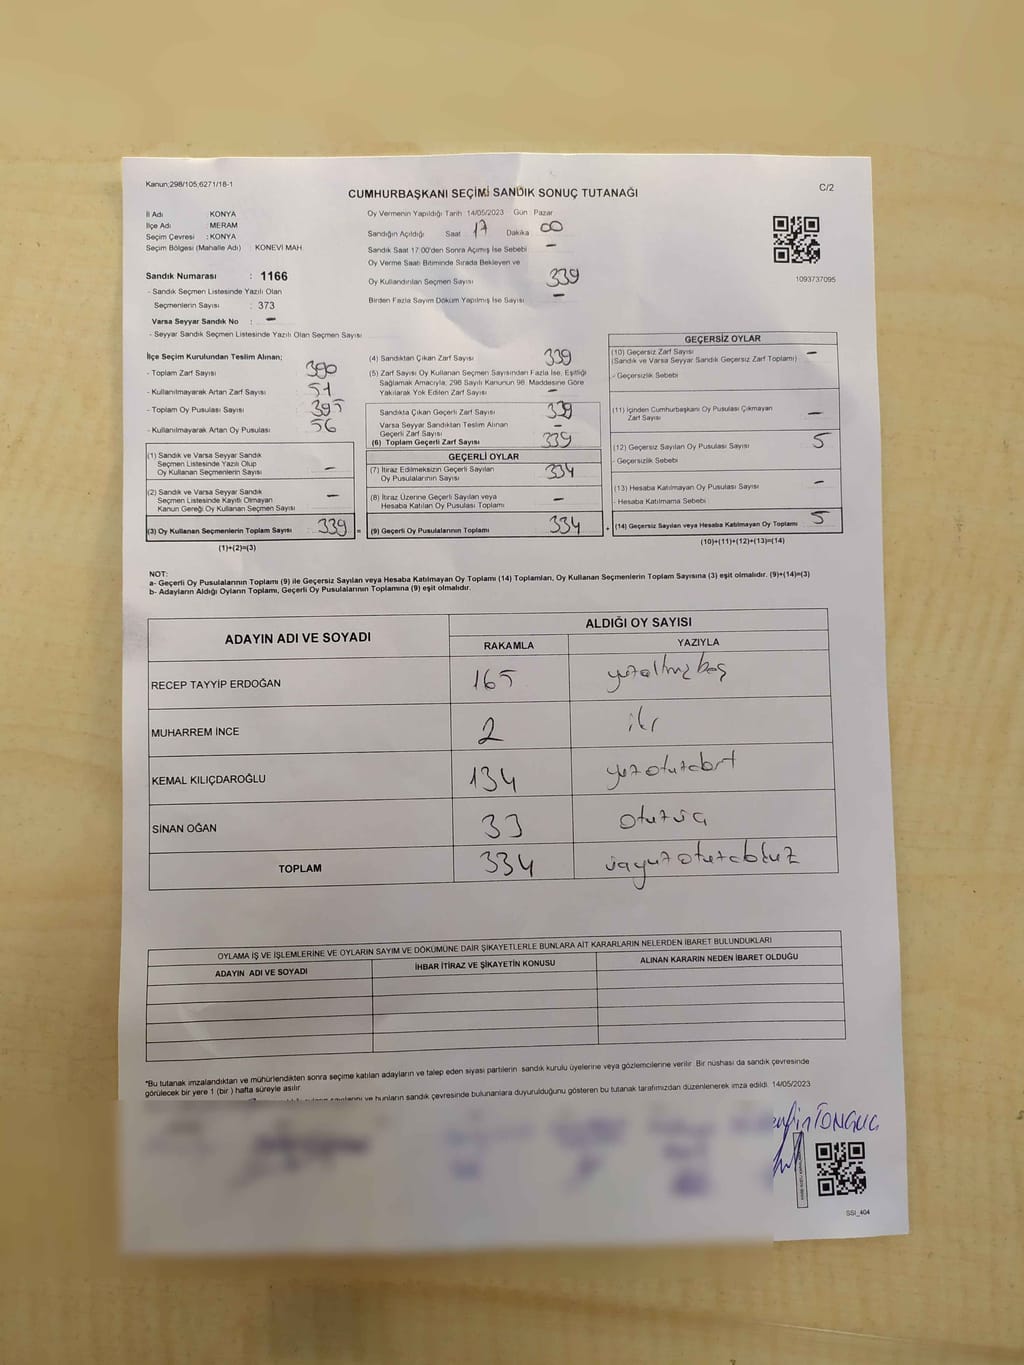 Kanun;298/105;6271/18-1
CUMHURBAŞKANI SEÇİMİ SANDIK SONUÇ TUTANAĞI
C/2
İl Adı KONYA
İlçe Adı : MERAM
Seçim Çevresi : KONYA
Seçim Bölgesi (Mahalle Adı) : KONEVİ MAH.
Sandık Numarası : 1166
- Sandık Seçmen Listesinde Yazılı Olan
Seçmenlerin Sayısı : 373
Varsa Seyyar Sandık No : -
- Seyyar Sandık Seçmen Listesinde Yazılı Olan Seçmen Sayısı
Oy Vermenin Yapıldığı Tarih 14/05/2023 Gün Pazar
Sandığın Açıldığı Saat 17 Dakika 00
Sandık Saat 17:00'den Sonra Açmış İse Sebebi -
Oy Verme Saati Bitiminde Sırada Bekleyen ve
Oy Kullandırılan Seçmen Sayısı 339
Birden Fazla Sayım Döküm Yapılmış İse Sayısı -
1093737095
İlçe Seçim Kurulundan Teslim Alınan;
- Toplam Zarf Sayısı 390
- Kullanılmayarak Artan Zarf Sayısı 51
- Toplam Oy Pusulası Sayısı 395
- Kullanılmayarak Artan Oy Pusulası 56
(1) Sandık ve Varsa Seyyar Sandık
Seçmen Listesinde Yazılı Olup
Oy Kullanan Seçmenlerin Sayısı -
(2) Sandık ve Varsa Seyyar Sandık
Seçmen Listesinde Kayıtlı Olmayan
Kanun Gereği Oy Kullanan Seçmen Sayısı -
(3) Oy Kullanan Seçmenlerin Toplam Sayısı 339 =
(1)+(2)=(3)
(4) Sandıktan Çıkan Zarf Sayısı 339
(5) Zarf Sayısı Oy Kullanan Seçmen Sayısından Fazla İse, Eşitliği
Sağlamak Amacıyla; 298 Sayılı Kanunun 98. Maddesine Göre
Yakılarak Yok Edilen Zarf Sayısı -
Sandıkta Çıkan Geçerli Zarf Sayısı 339
Varsa Seyyar Sandıktan Teslim Alınan
Geçerli Zarf Sayısı -
(6) Toplam Geçerli Zarf Sayısı 339
GEÇERLİ OYLAR
(7) İtiraz Edilmeksizin Geçerli Sayılan
Oy Pusulalarının Sayısı 334
(8) İtiraz Üzerine Geçerli Sayılan veya
Hesaba Katılan Oy Pusulası Toplamı -
(9) Geçerli Oy Pusulalarının Toplamı 334 +
GEÇERSİZ OYLAR
(10) Geçersiz Zarf Sayısı -
(Sandık ve Varsa Seyyar Sandık Geçersiz Zarf Toplamı)
- Geçersizlik Sebebi
(11) İçinden Cumhurbaşkanı Oy Pusulası Çıkmayan
Zarf Sayısı -
(12) Geçersiz Sayılan Oy Pusulası Sayısı 5
- Geçersizlik Sebebi
(13) Hesaba Katılmayan Oy Pusulası Sayısı -
- Hesaba Katılmama Sebebi
(14) Geçersiz Sayılan veya Hesaba Katılmayan Oy Toplamı 5
(10)+(11)+(12)+(13)=(14)
NOT:
a- Geçerli Oy Pusulalarının Toplamı (9) ile Geçersiz Sayılan veya Hesaba Katılmayan Oy Toplamı (14) Toplamları, Oy Kullanan Seçmenlerin Toplam Sayısına (3) eşit olmalıdır. (9)+(14)=(3)
b- Adayların Aldığı Oyların Toplamı, Geçerli Oy Pusulalarının Toplamına (9) eşit olmalıdır.
ADAYIN ADI VE SOYADI ALDIĞI OY SAYISI
RAKAMLA YAZIYLA
RECEP TAYYİP ERDOĞAN 165 yüzaltmışbeş
MUHARREM İNCE 2 iki
KEMAL KILIÇDAROĞLU 134 yüzotuzdört
SİNAN OĞAN 33 otuzüç
TOPLAM 334
OYLAMA İŞ VE İŞLEMLERİNE VE OYLARIN SAYIM VE DÖKÜMÜNE DAİR ŞİKAYETLERLE BUNLARA AİT KARARLARIN NELERDEN İBARET BULUNDUKLARI
ADAYIN ADI VE SOYADI İHBAR İTİRAZ VE ŞİKAYETİN KONUSU ALINAN KARARIN NEDEN İBARET OLDUĞU
*Bu tutanak imzalandıktan ve mühürlendikten sonra seçime katılan adayların ve talep eden siyasi partilerin sandık kurulu üyelerine veya gözlemcilerine verilir. Bir nüshası da sandık çevresinde
görülecek bir yere 1 (bir) hafta süreyle asılır.
ve bunların sandık çevresinde bulunanlara duyurulduğunu gösteren bu tutanak tarafımızdan düzenlenerek imza edildi. 14/05/2023
TONGUÇ
SSI_404